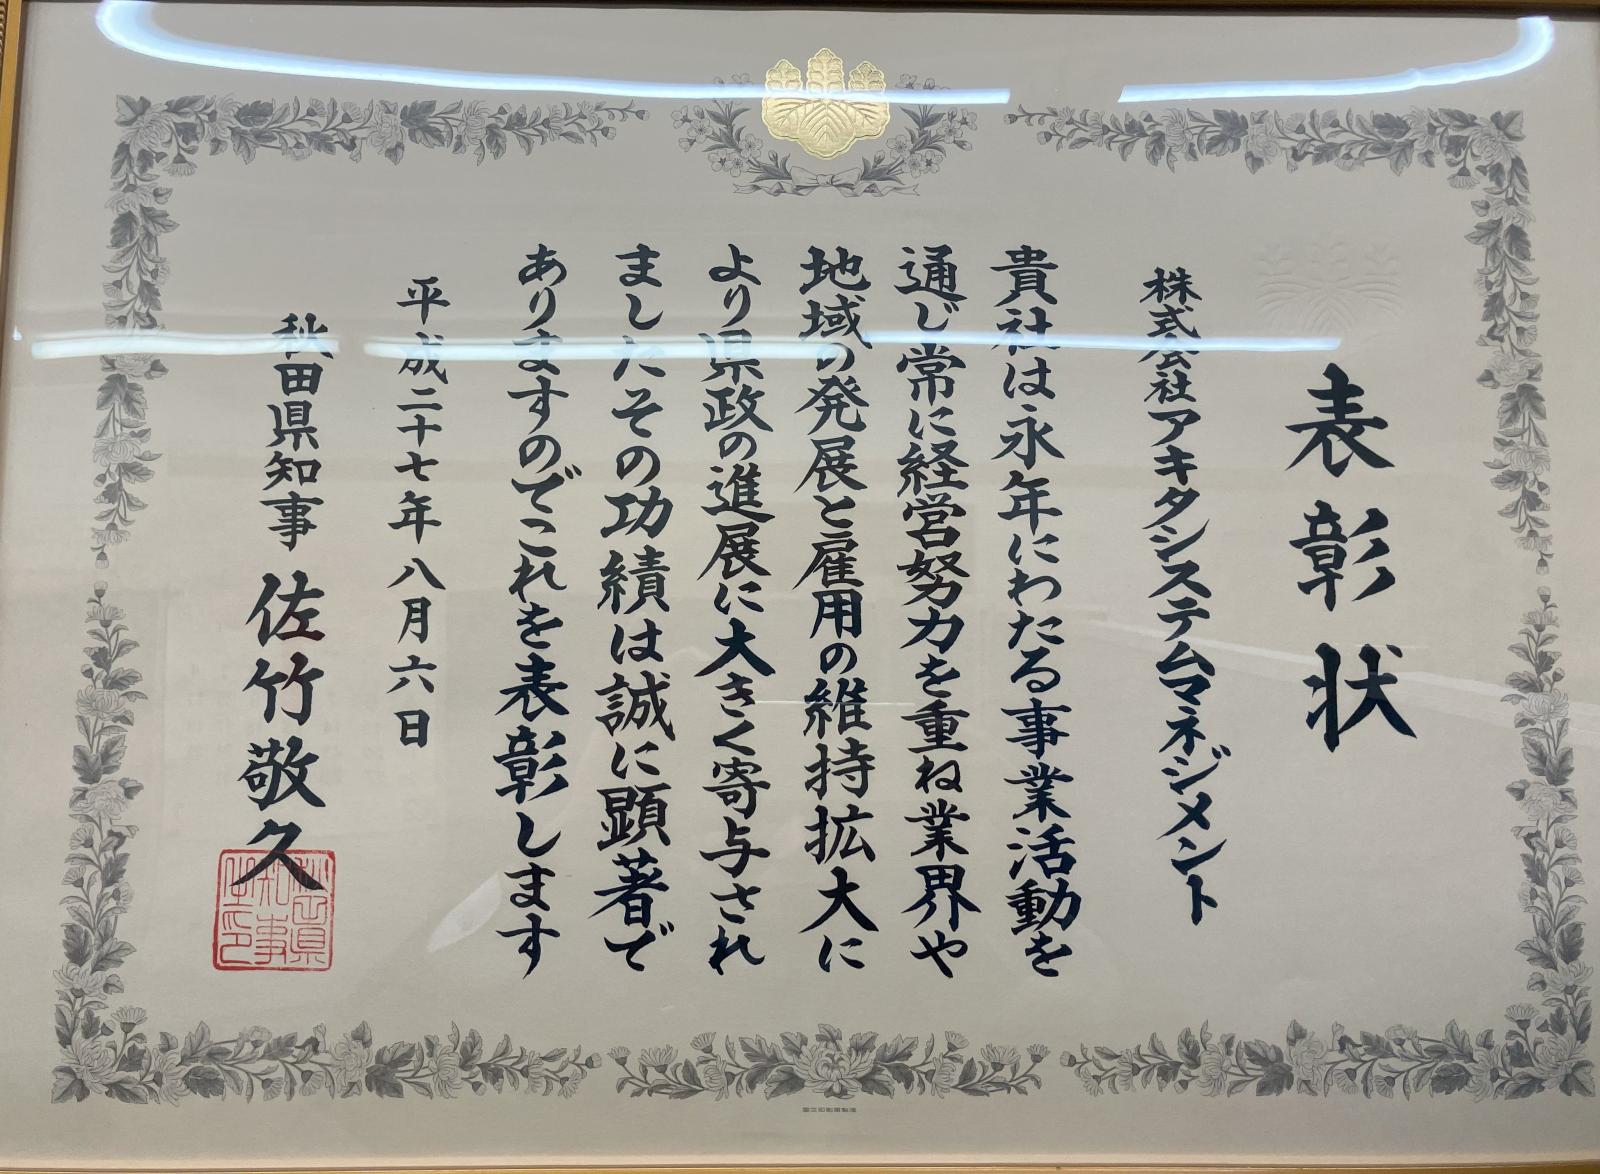 表彰状
株式会社アキタシステムマネジメント
貴社は永年にわたる事業活動を
通じ常に経営努力を重ね業界や
地域の発展と雇用の維持拡大に
より県政の進展に大きく寄与され
ましたその功績は誠に顕著で
ありますのでこれを表彰します
平成二十七年八月六日
秋田県知事 佐竹敬久
秋田県知事之印